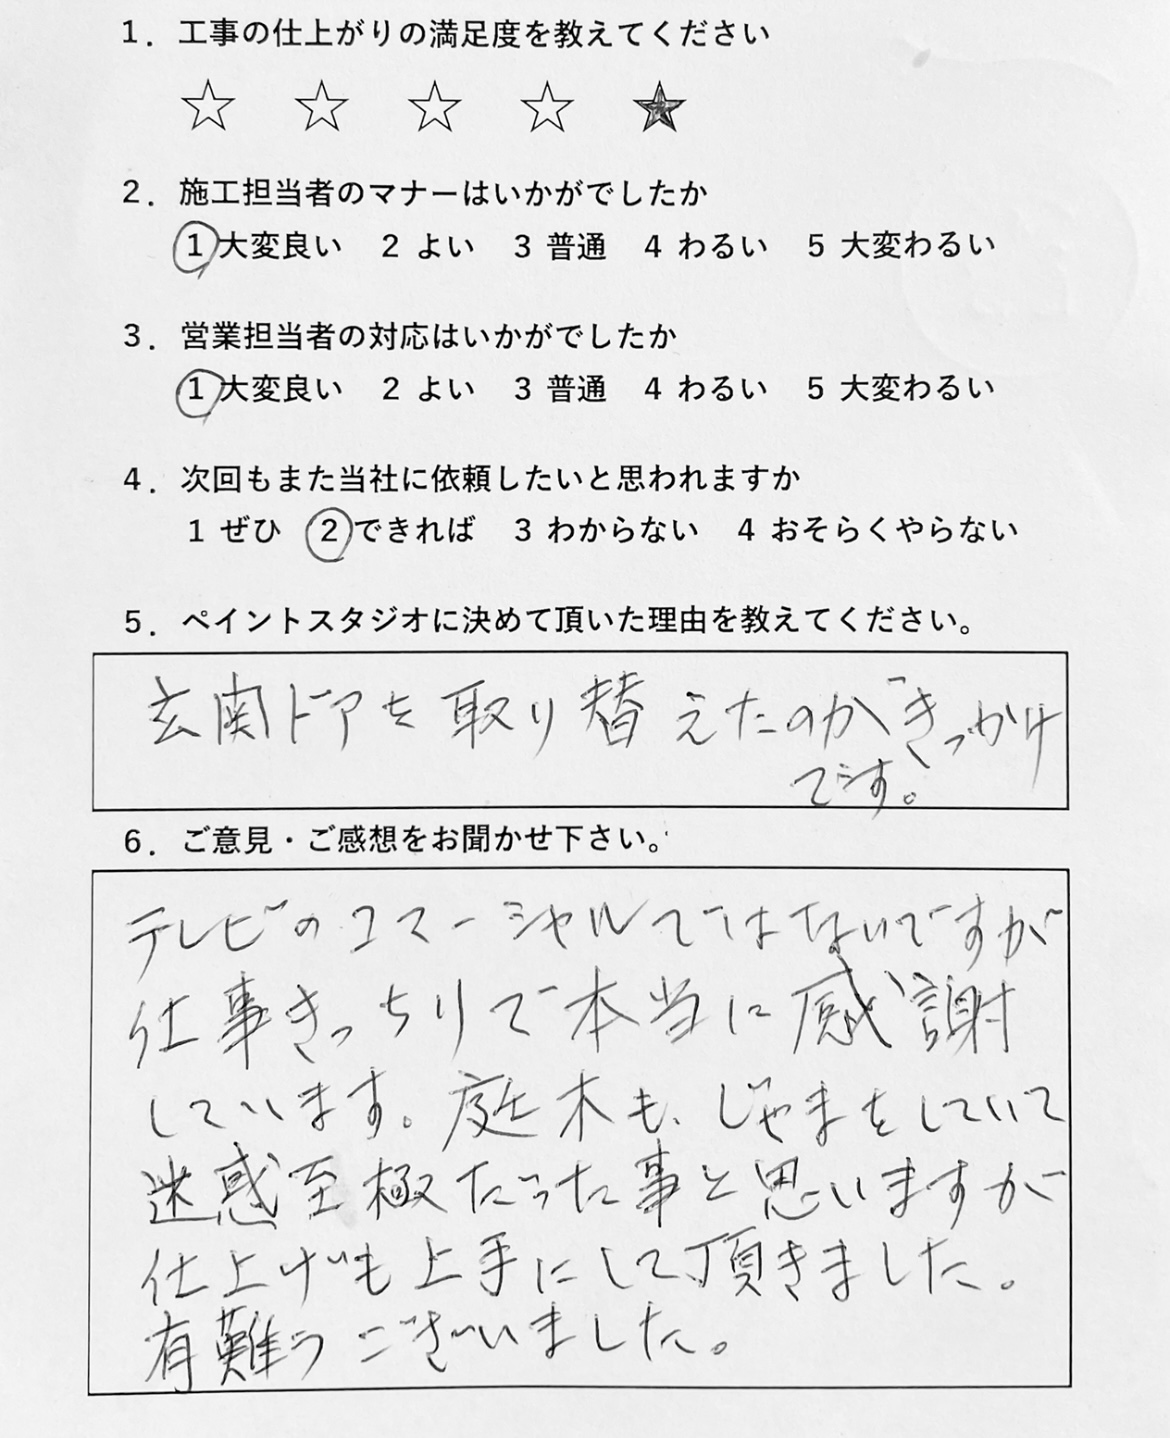 1. 工事の仕上がりの満足度を教えてください
☆ ☆ ☆ ☆ ★
2. 施工担当者のマナーはいかがでしたか
1 大変良い 2 よい 3 普通 4 わるい 5 大変わるい
3. 営業担当者の対応はいかがでしたか
1 大変良い 2 よい 3 普通 4 わるい 5 大変わるい
4. 次回もまた当社に依頼したいと思われますか
1 ぜひ 2 できれば 3 わからない 4 おそらくやらない
5. ペイントスタジオに決めて頂いた理由を教えてください。
玄関ドアを取り替えたのがきっかけ
です。
6. ご意見・ご感想をお聞かせ下さい。
テレビのコマーシャルではないですが
仕事きっちりで本当に感謝
しています。庭木も、じゃまをしていて
迷惑至極だった事と思いますが
仕上げも上手にして頂きました。
有難うございました。